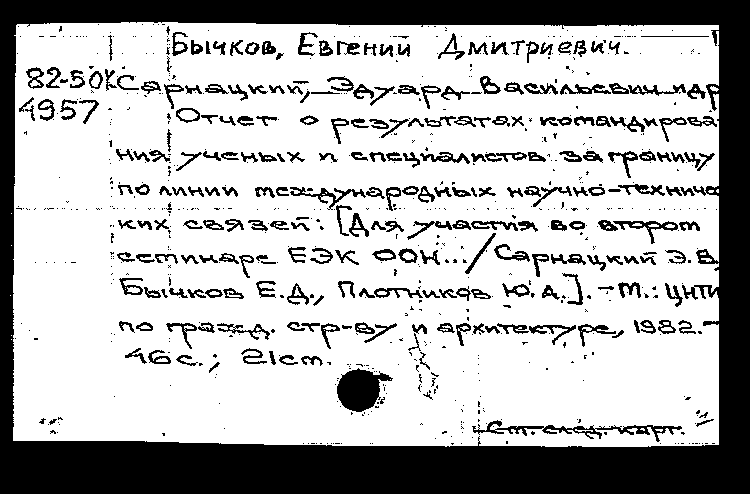 Бычков, Евгений Дмитриевич.
82-50К Сарнацкий, Эдуард Васильевич и др
4957 Отчет о результатах командирова
ния ученых и специалистов за границу
по линии международных научно-техничес
ких связей: [Для участия во втором
семинаре ЕЭК ООН.../Сарнацкий Э.В,
Бычков Е.Д., Плотников Ю.А.]. - М.: ЦНТИ
по гражд. стр-ву и архитектуре, 1982. -
46 с.; 21 см.
См. след. карт.